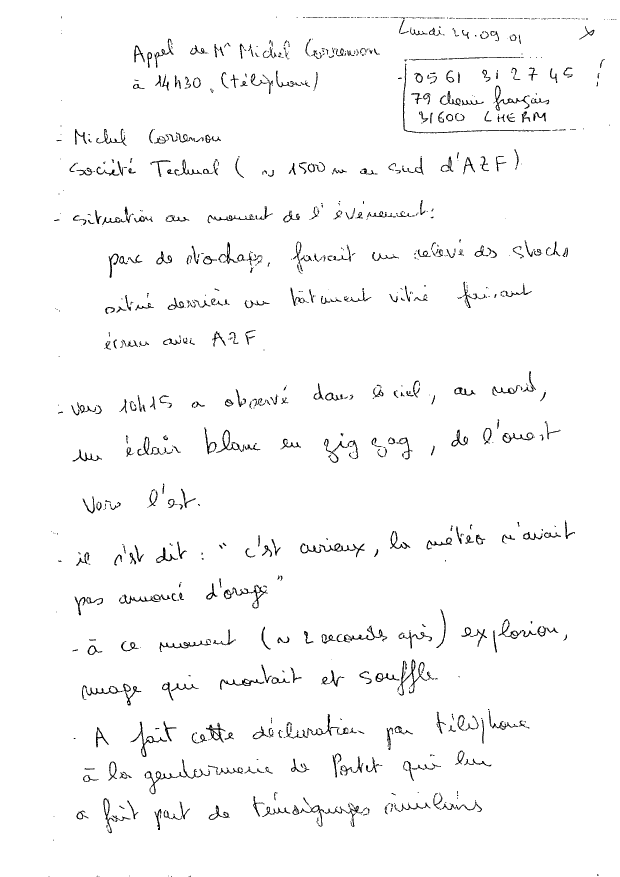 Lundi 24.09 01
Appel de Mr Michel Corrensou
à 14h30. (téléphone)
- 05 61 31 27 45
79 chemin français
31600 LHERM
- Michel Corrensou
Société Technal ( ~ 1500 m au sud d'AZF)
- Situation au moment de l'événement:
parc de stockage, faisait un relevé des stocks
situé derrière un bâtiment vitré faisant
écran avec AZF
- Vers 10h15 a observé dans le ciel, au nord,
un éclair blanc en zig zag, de l'ouest
vers l'est.
- il s'est dit : " c'est curieux, la météo n'avait
pas annoncé d'orage"
- à ce moment (~ 2 secondes après) explosion,
nuage qui montait et souffle.
- A fait cette déclaration par téléphone
à la gendarmerie de Portet qui lui
a fait part de témoignages similaires